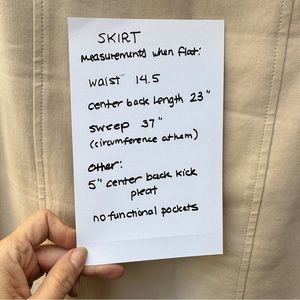 SKIRT
measurements when flat:
waist 14.5
center back length 23"
sweep 37"
(circumference at hem)
other:
5" center back kick
pleat
no functional pockets